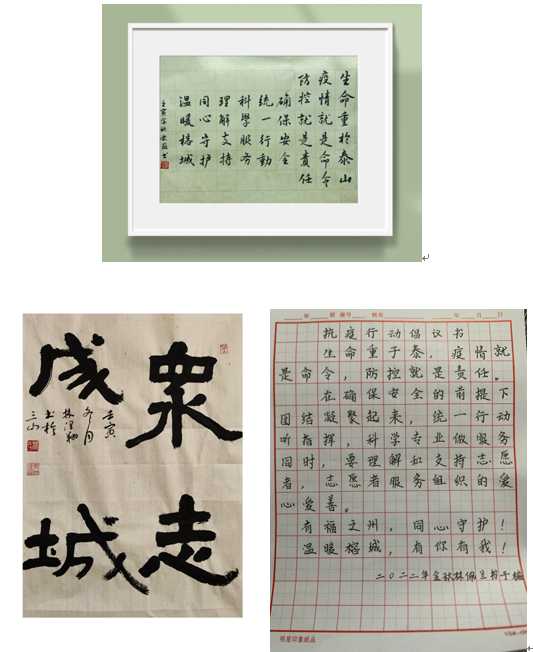 生命重於泰山
疫情就是命令
防控就是责任
确保安全
统一行動
科學服务
理解支持
同心守护
温暖榕城
壬寅
眾志
成城
壬寅
冬月
书於
三山
抗疫行动倡议书
生命重于泰，疫情就
是命令，防控就是责任。
在确保安全的前提下
团结凝聚起来，统一行动
听指挥，科学专业做服务
同时，要理解和支持志愿
者，志愿者服务组织的爱
心爱善。
有福之州，同心守护！
温暖榕城，有你有我！
二0二二年金秋林佩